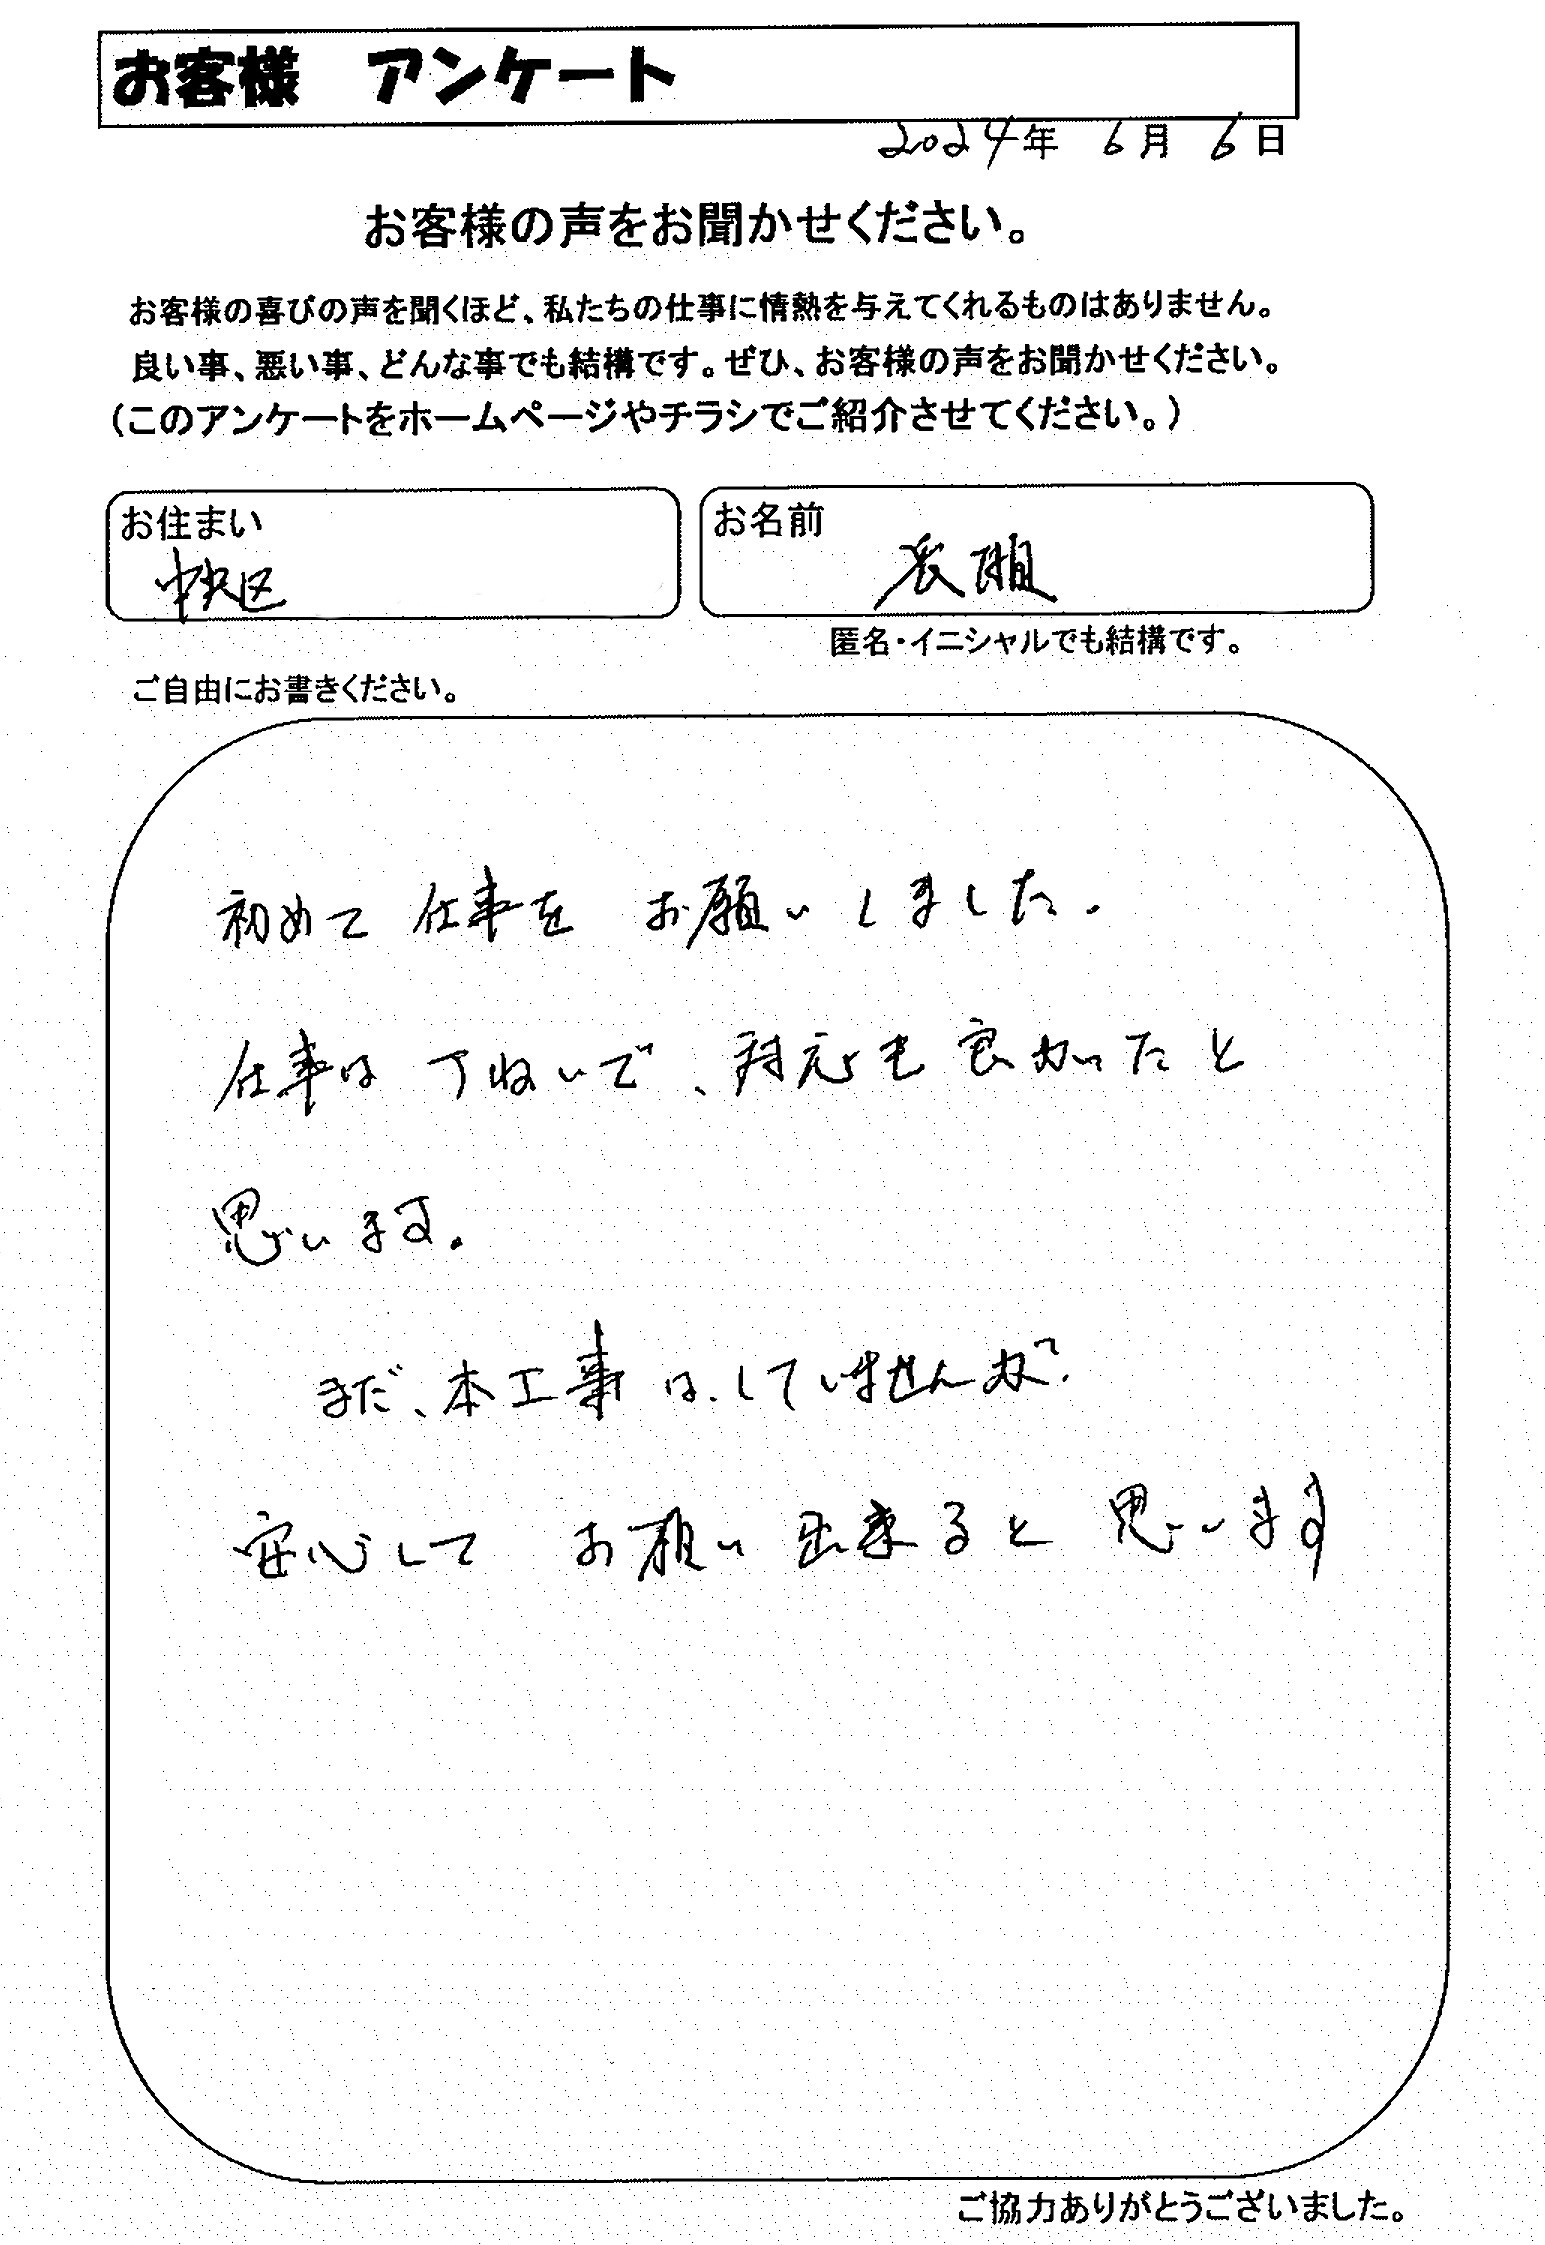 お客様 アンケート
2024年 6月 6日
お客様の声をお聞かせください。
お客様の喜びの声を聞くほど、私たちの仕事に情熱を与えてくれるものはありません。
良い事、悪い事、どんな事でも結構です。ぜひ、お客様の声をお聞かせください。
(このアンケートをホームページやチラシでご紹介させてください。)
お住まい
中央区
お名前
匿名・イニシャルでも結構です。
ご自由にお書きください。
初めて 仕事を お願いしました.
仕事は ていねいで、対応も良かったと
思います.
まだ、本工事は.していませんが.
安心して お願い出来ると思います
ご協力ありがとうございました。